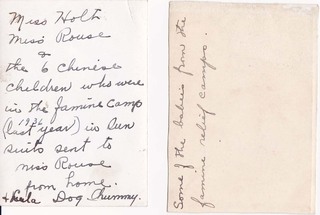 Miss Holt
Miss Rouse
&
the 6 Chinese
children who were
in the famine camp
1936
(last year) in sun
suits sent to
miss Rouse
from home.
+ Dog Chummy.
Some of the babies from the
famine relief camps.